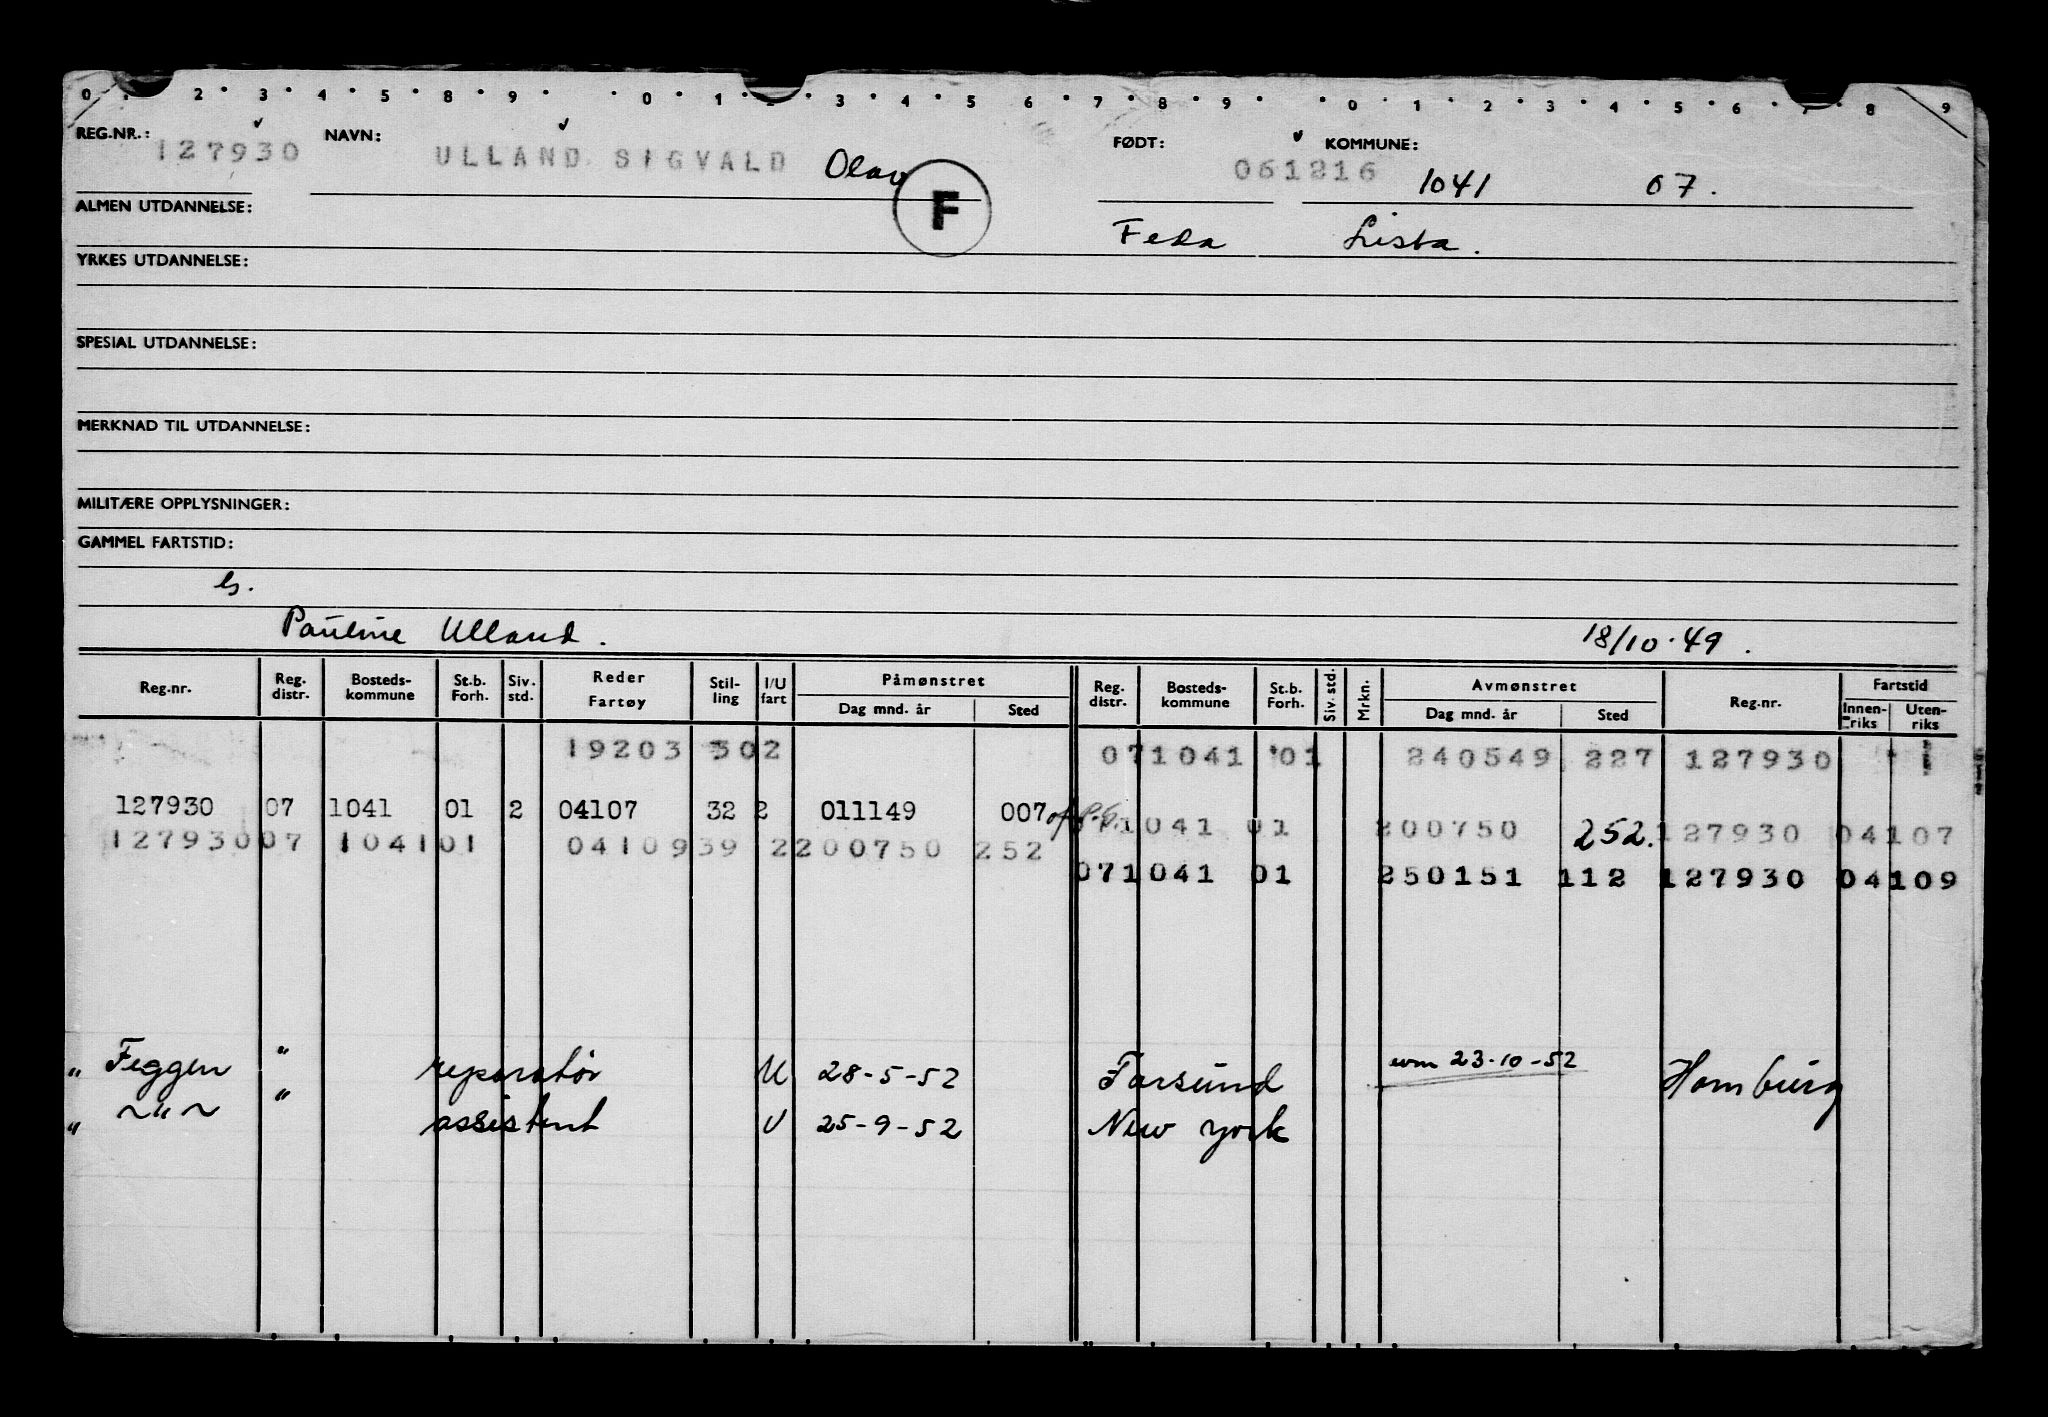 0 2 3 4 5 8 9 0 1 3 4 5 6 7 8 9 0 1 2 3 4 5 6 7 8 9
REG.NR.: 127930 NAVN: ULLAND SIGVALD Olav FØDT: 061216 KOMMUNE: 1041 07.
F
ALMEN UTDANNELSE: Feda Lista.
YRKES UTDANNELSE:
SPESIAL UTDANNELSE:
MERKNAD TIL UTDANNELSE:
MILITÆRE OPPLYSNINGER:
GAMMEL FARTSTID:
Pauline Ulland. 18/10.49.
Reg.nr. Reg. distr. Bosteds-kommune St.b. Forh. Siv. std. Reder Fartøy Stil-ling I/U fart Påmønstret Dag mnd. år Sted Reg. distr. Bosteds-kommune St.b. Forh. Siv. std. Mrkn. Avmønstret Dag mnd. år Sted Reg.nr. Fartstid Innen-riks Uten-riks
19203 302 071041 01 240549 227 127930
127930 07 1041 01 2 04107 32 2 011149 007 071041 01 200750 252. 127930 04107
127930 07 104101 0410939 2200750 252
071041 01 250151 112 127930 04109
" Feggen " reparatør U 28-5-52 Farsund 23-10-52 Hamburg
" ~"~ " assistent U 25-9-52 New York